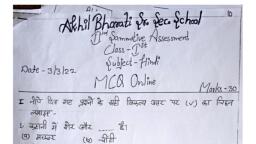 Akhil Bharati Sr. Sec. School
IInd Summative Assessment
Class - Ist
Subject - Hindi
Date - 3/3/22
MCQ Online
Marks - 30
I नीचे दिए गए प्रश्नों के सही विकल्प पर (✓) का चिह्न
लगाओ-
1. कहानी में शेर और ...... है।
(a) मच्छर (b) चींटी